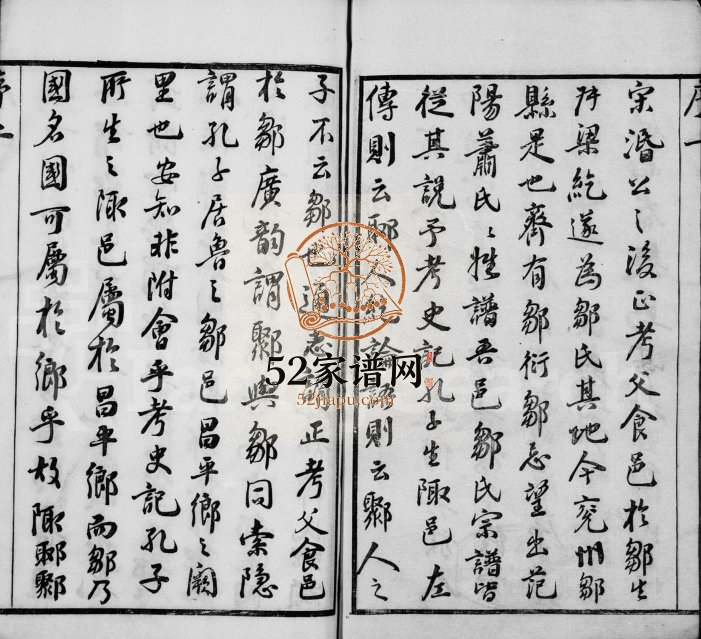 序一
宋湣公之後正考父食邑於鄒生
叔梁紇遂為鄒氏其地今兗州鄒
縣是也齊有鄒衍鄒忌望出范
陽蕭氏之姓譜吾邑鄒氏宗譜皆
從其說予考史記孔子生陬邑左
傳則云郰人紇論語則云鄹人之
子不云鄒也通志謂正考父食邑
於鄒廣韵謂鄹與鄒同索隐
謂孔子居魯之鄒邑昌平鄉之闕
里也安知非附會乎考史記孔子
所生之陬邑屬於昌平鄉而鄒乃
國名國可屬於鄉乎故陬郰鄹
序二
52家谱网
52jiapu.com